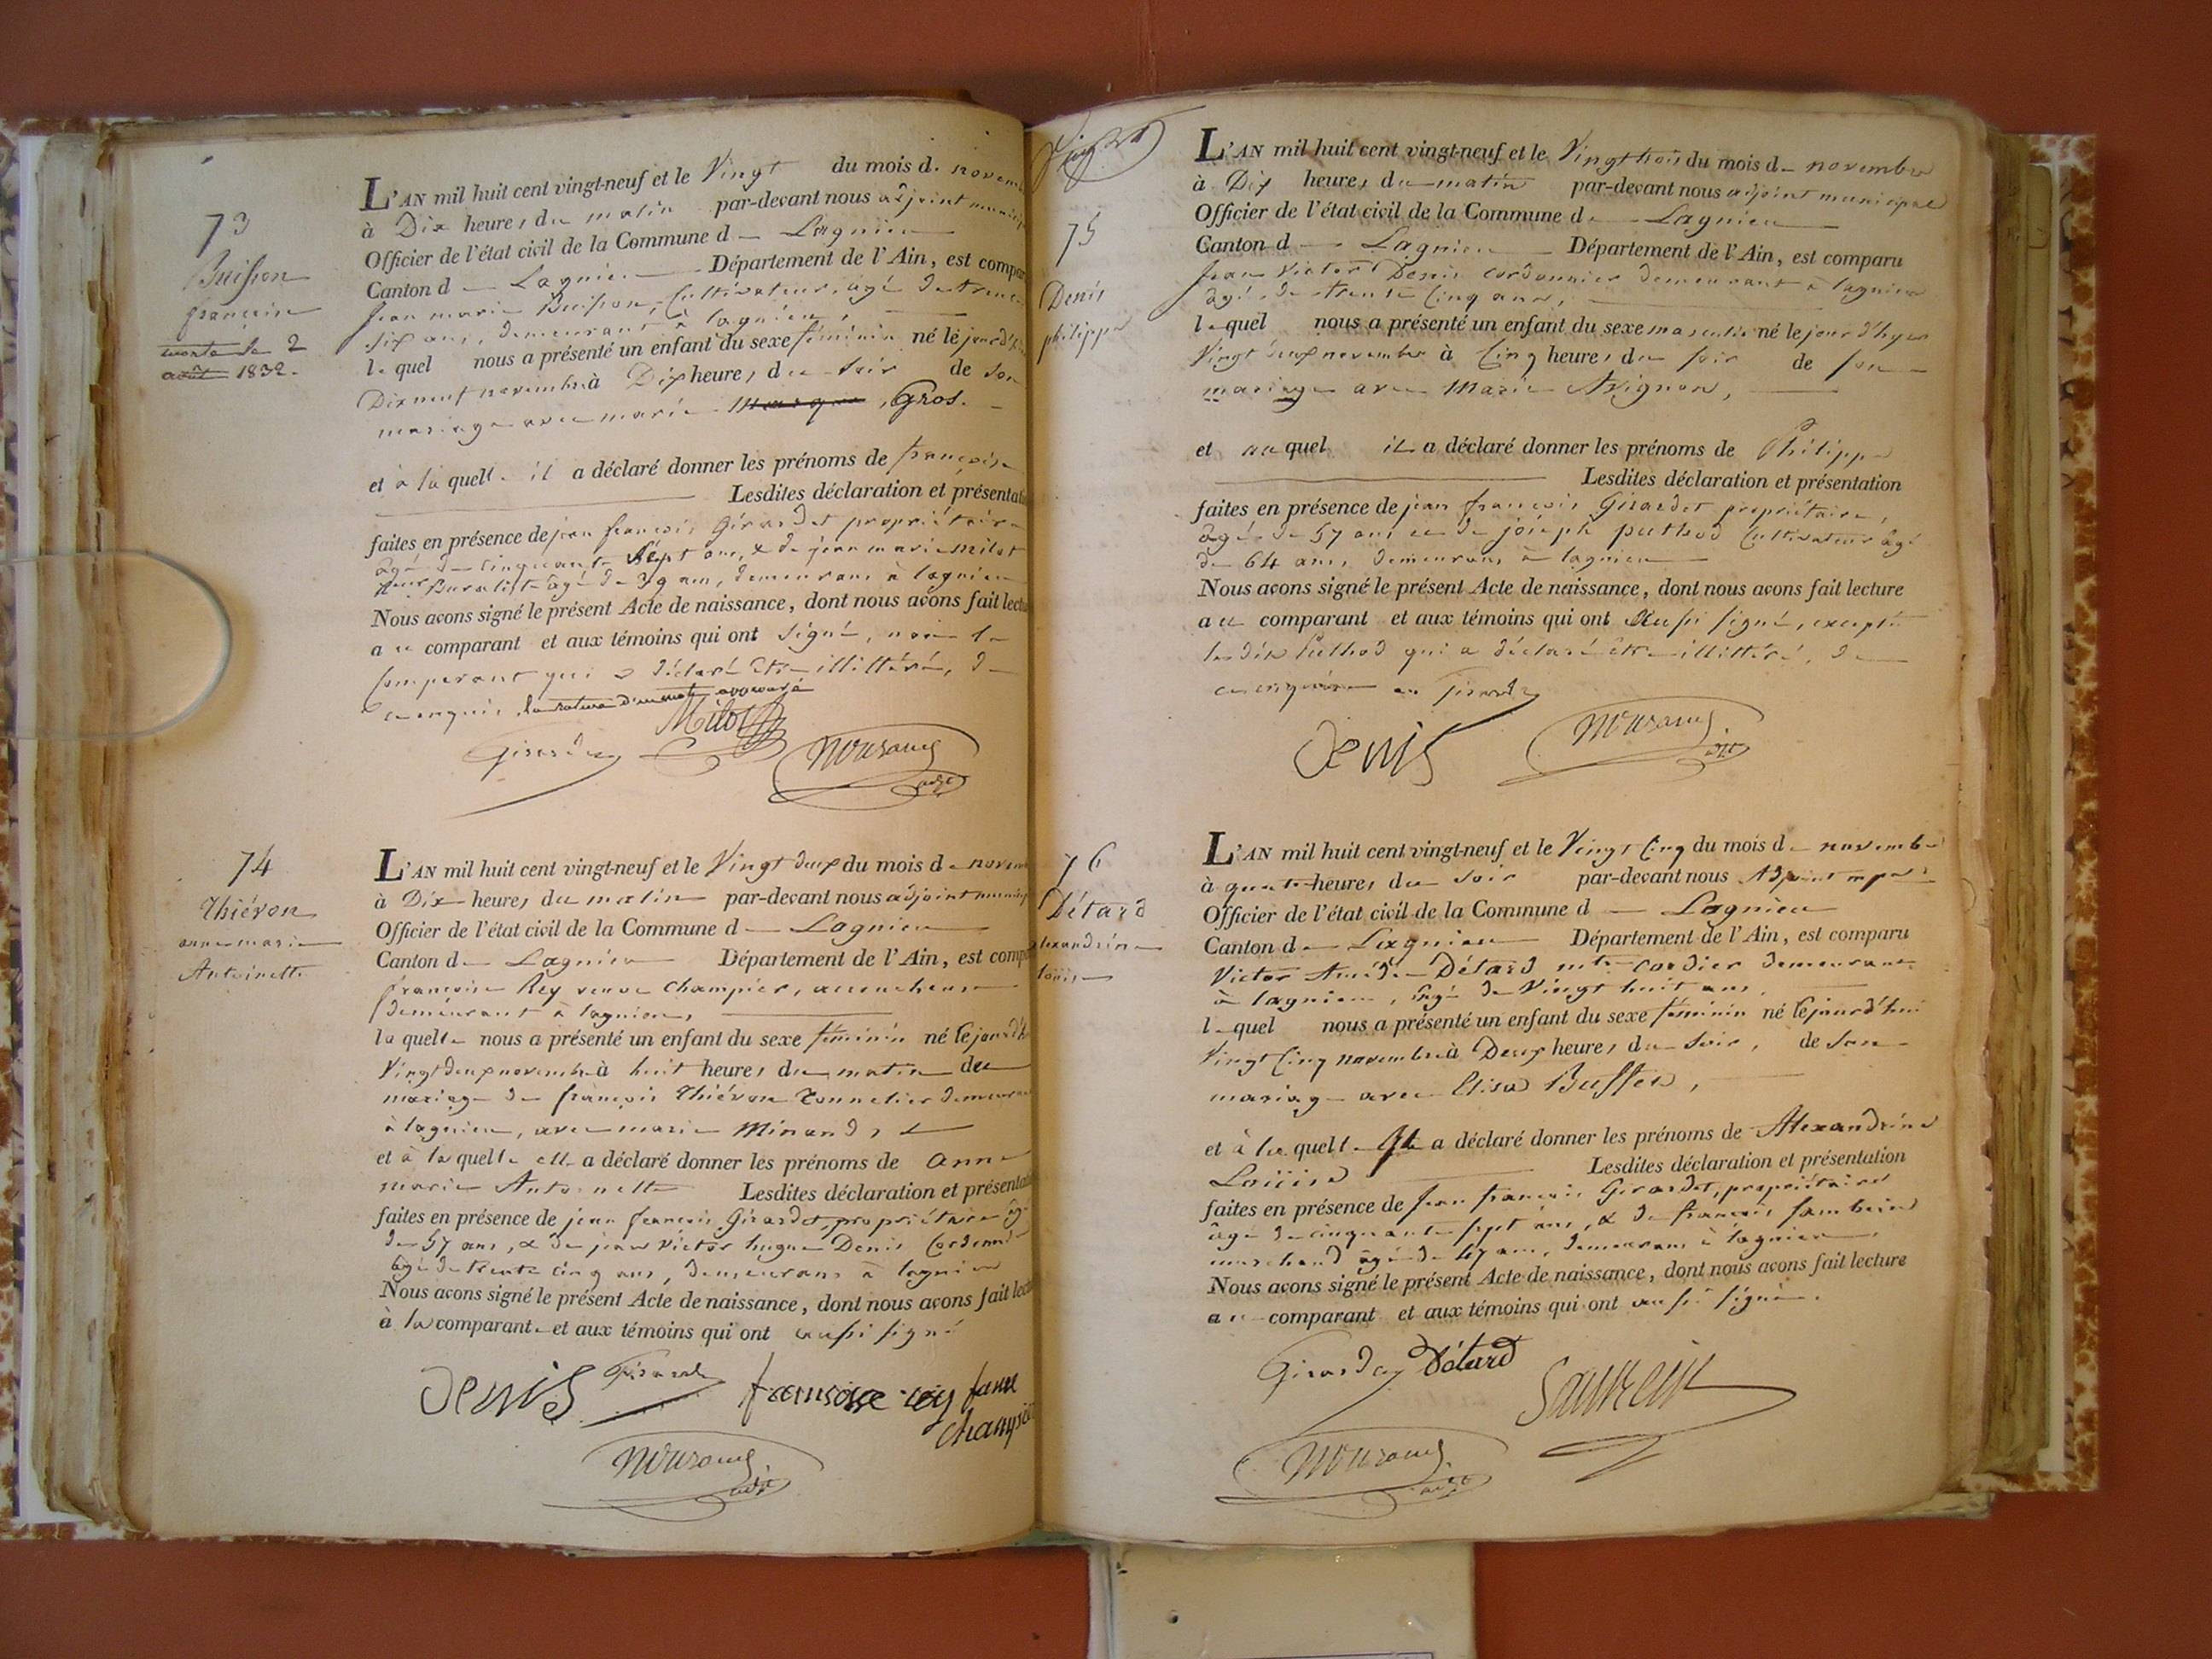 73
Buisson
françoise
morte le 2
août 1832.
L'AN mil huit cent vingt-neuf et le Vingt du mois de novembre
à Dix heures du matin par-devant nous adjoint municip
Officier de l'état civil de la Commune d Lagnieu
Canton d Lagnieu Département de l'Ain, est compar
jean marie Buisson, Cultivateur, agé de trente
six ans, demeurant à lagnieu,
le quel nous a présenté un enfant du sexe féminin né le jour d'hier
Dix neuf novembre à Dix heures du soir de son
mariage avec marie Gros.
et à la quelle il a déclaré donner les prénoms de françoise
Lesdites déclaration et présentati
faites en présence de jean françois Girardet propriétaire
âgé de cinquante sept ans, & de jean marie milot
Buraliste âgé de 39 ans, demeurans à lagnieu
Nous avons signé le présent Acte de naissance, dont nous avons fait lectu
au comparant et aux témoins qui ont signé, non le
Comparant qui a déclaré être illittéré, de
ce enquis la rature d'un mot approuvé
Milot
Girardet
adjt
74
Thiévon
anne marie
Antoinette
L'AN mil huit cent vingt-neuf et le Vingt deux du mois de novem
à Dix heures du matin par-devant nous adjoint municip
Officier de l'état civil de la Commune d Lagnieu
Canton de Lagnieu Département de l'Ain, est comp
françoise Rey veuve Champier, accoucheuse
demeurant à lagnieu,
la quelle nous a présenté un enfant du sexe féminin né le jourd'h
Vingt deux novembre à huit heures du matin du
mariage de françois Thiévon Tonnelier demeurant
à lagnieu, avec marie Minand,
et à la quelle elle a déclaré donner les prénoms de anne
marie Antoinette Lesdites déclaration et présentati
faites en présence de jean françois Girardet, propriétaire âgé
de 57 ans, & de jean Victor hugue Denis Cordonnier
âgé de trente cinq ans, demeurans à lagnieu
Nous avons signé le présent Acte de naissance, dont nous avons fait lect
à la comparante et aux témoins qui ont aussi signé
Denis Girardet françoise rey fame
champier
adjt
75
Denis
philippe
L'AN mil huit cent vingt-neuf et le Vingt trois du mois de novembre
à Dix heures du matin par-devant nous adjoint municipal
Officier de l'état civil de la Commune de Lagnieu
Canton d Lagnieu Département de l'Ain, est comparu
jean Victor Denis cordonnier demeurant à lagnieu
âgé de trente Cinq ans,
le quel nous a présenté un enfant du sexe masculin né le jour d'hyer
Vingt deux novembre à Cinq heures du soir de son
mariage avec Marie Avignon,
et au quel il a déclaré donner les prénoms de Philippe
Lesdites déclaration et présentation
faites en présence de jean françois Girardet propriétaire,
âgé de 57 ans et de joseph puthod Cultivateur âgé
de 64 ans, demeurans à lagnieu
Nous avons signé le présent Acte de naissance, dont nous avons fait lecture
au comparant et aux témoins qui ont Aussi signé, excepté
le dit Puthod qui a déclaré être illittéré, de
ce enquis Girardet
Denis
adjt
76
Détard
alexandrine
louise
L'AN mil huit cent vingt-neuf et le Vingt Cinq du mois de novembre
à quatre heures du soir par-devant nous Adjoint mpal
Officier de l'état civil de la Commune d Lagnieu
Canton de Lagnieu Département de l'Ain, est comparu
Victor Amédée Détard md cordier demeurant
à lagnieu, âgé de Vingt huit ans,
le quel nous a présenté un enfant du sexe féminin né le jourd'hui
Vingt Cinq novembre à Deux heures du soir, de son
mariage avec Elisa Buffet,
et à la quelle Il a déclaré donner les prénoms de Alexandrine
Louise Lesdites déclaration et présentation
faites en présence de jean françois Girardet, propriétaire
âgé de cinquante sept ans, & de françois
marchand âgé de 47 ans, demeurans à lagnieu,
Nous avons signé le présent Acte de naissance, dont nous avons fait lecture
au comparant et aux témoins qui ont aussi signé.
Girardet Détard
adjt